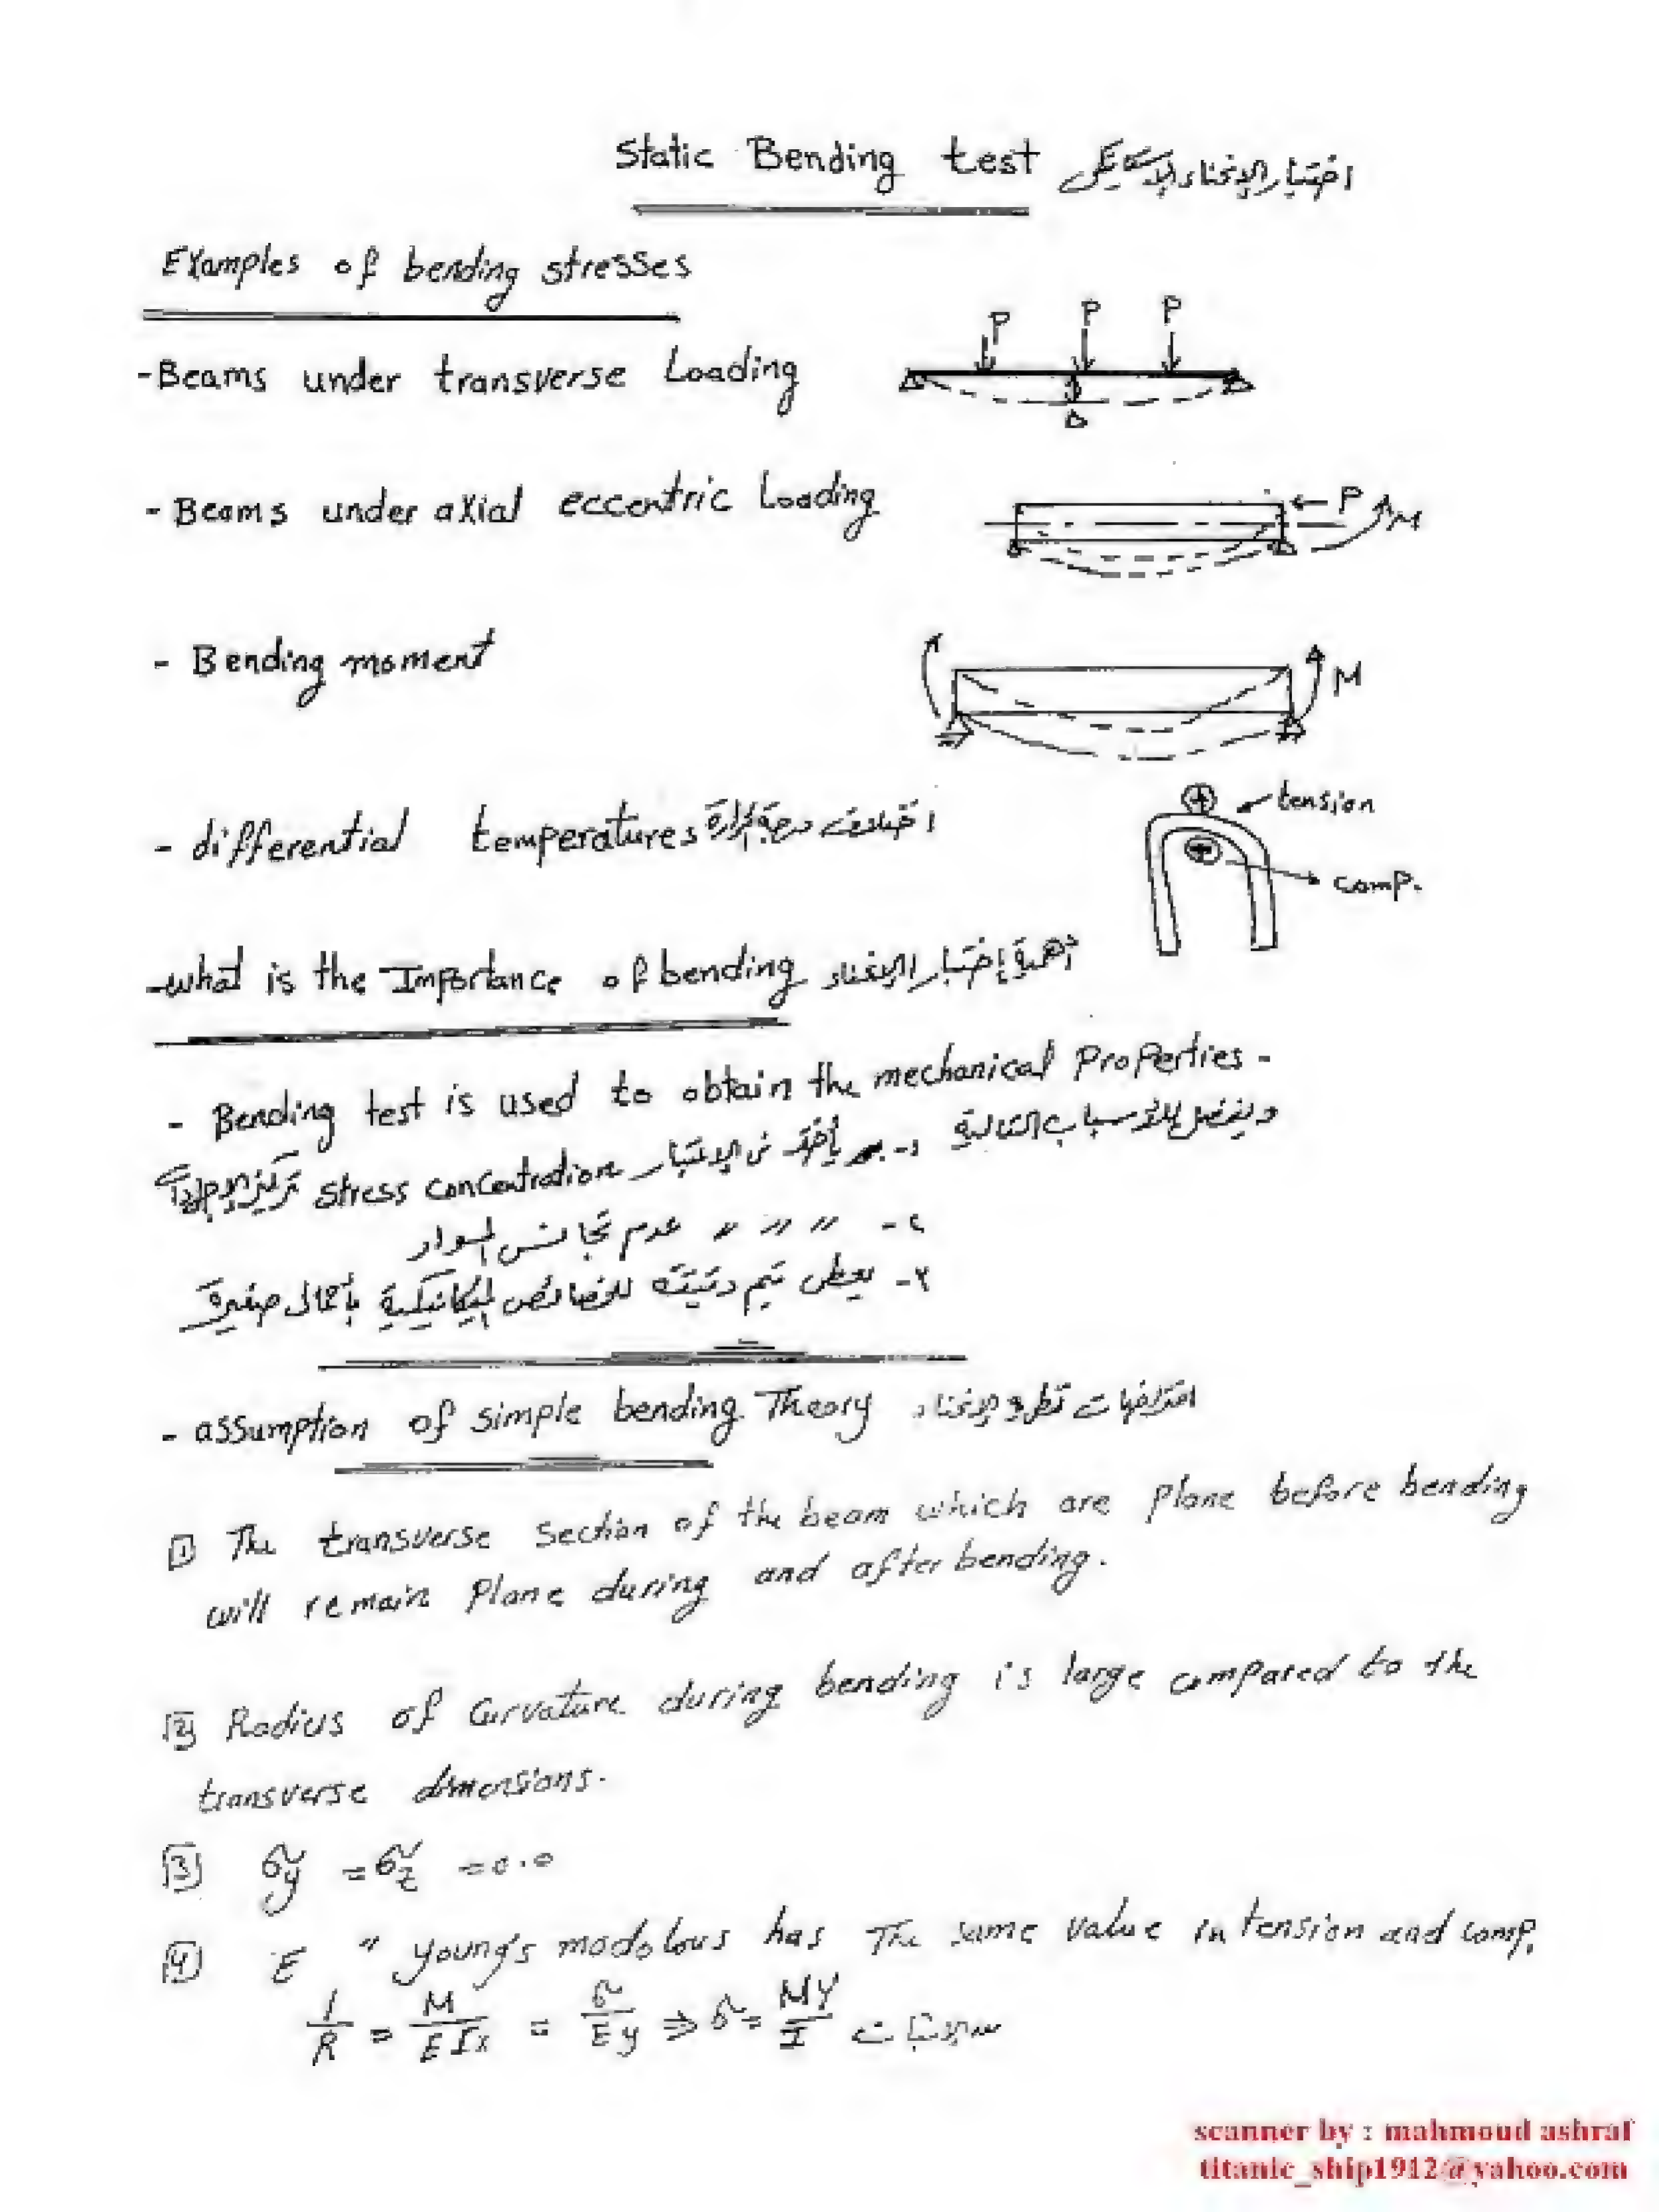 Static Bending test اختبار الإنحناء الإستاتيكى
Examples of bending stresses
P P P
-Beams under transverse Loading
Δ
- Beams under axial eccentric Loading
P M
- Bending moment
M
tension
- differential temperatures اختلاف درجة الحرارة
comp.
-what is the Importance of bending أهمية إختبار الإنحناء
- Bending test is used to obtain the mechanical Properties -
ويفضل للأسباب التالية ١- يأخذ فى الإعتبار stress concentration تركيز الإجهادات
٢- 〃 〃 〃 عدم تجانس المواد
٣- يعطى قيم دقيقة للخصائص الميكانيكية بأحمال صغيرة
- assumption of simple bending Theory افتراضات نظرية الإنحناء
1 The transverse section of the beam which are plane before bending
will remain Plane during and after bending.
2 Radius of Curvature during bending is large compared to the
transverse dimensions.
3 σy = σz = 0.0
4 E " young's modolous has The same value in tension and comp.
1/R = M/EIx = σ/Ey ⇒ σ = MY/I
scanner by : mahmoud ashraf
titanic_ship1912@yahoo.com